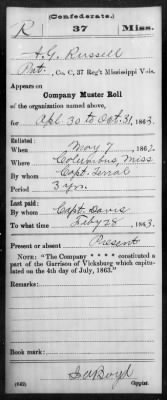 (Confederate.)
R 37 Miss.
A. G. Russell
Pvt., Co. C, 37 Reg't Mississippi Vols.
Appears on
Company Muster Roll
of the organization named above,
for Apl 30 to Oct. 31, 1863.
Enlisted:
When May 7, 1862
Where Columbus, Miss
By whom Capt. Terral
Period 3 yrs.
Last paid:
By whom Capt. Davis
To what time Feby 28, 1863.
Present or absent Present
NOTE: "The Company * * * * constituted a
part of the Garrison of Vicksburg which capitu-
lated on the 4th day of July, 1863."
Remarks:
Book mark:
(642)
Copyist.